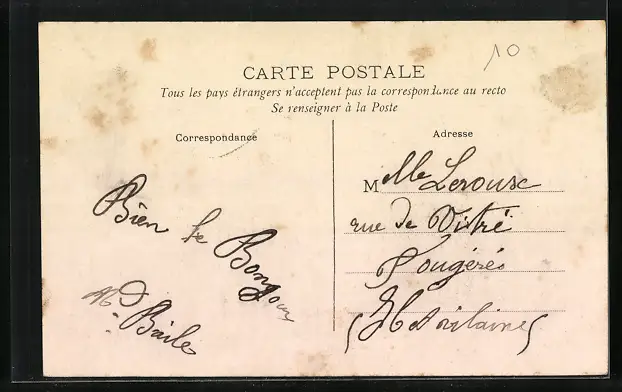 10
CARTE POSTALE
Tous les pays étrangers n'acceptent pas la correspondance au recto
Se renseigner à la Poste
Correspondance
Bien le Bonjour
Adresse
Melle Leroux
rue de Vitré
Fougéres
(Ile et vilaine)